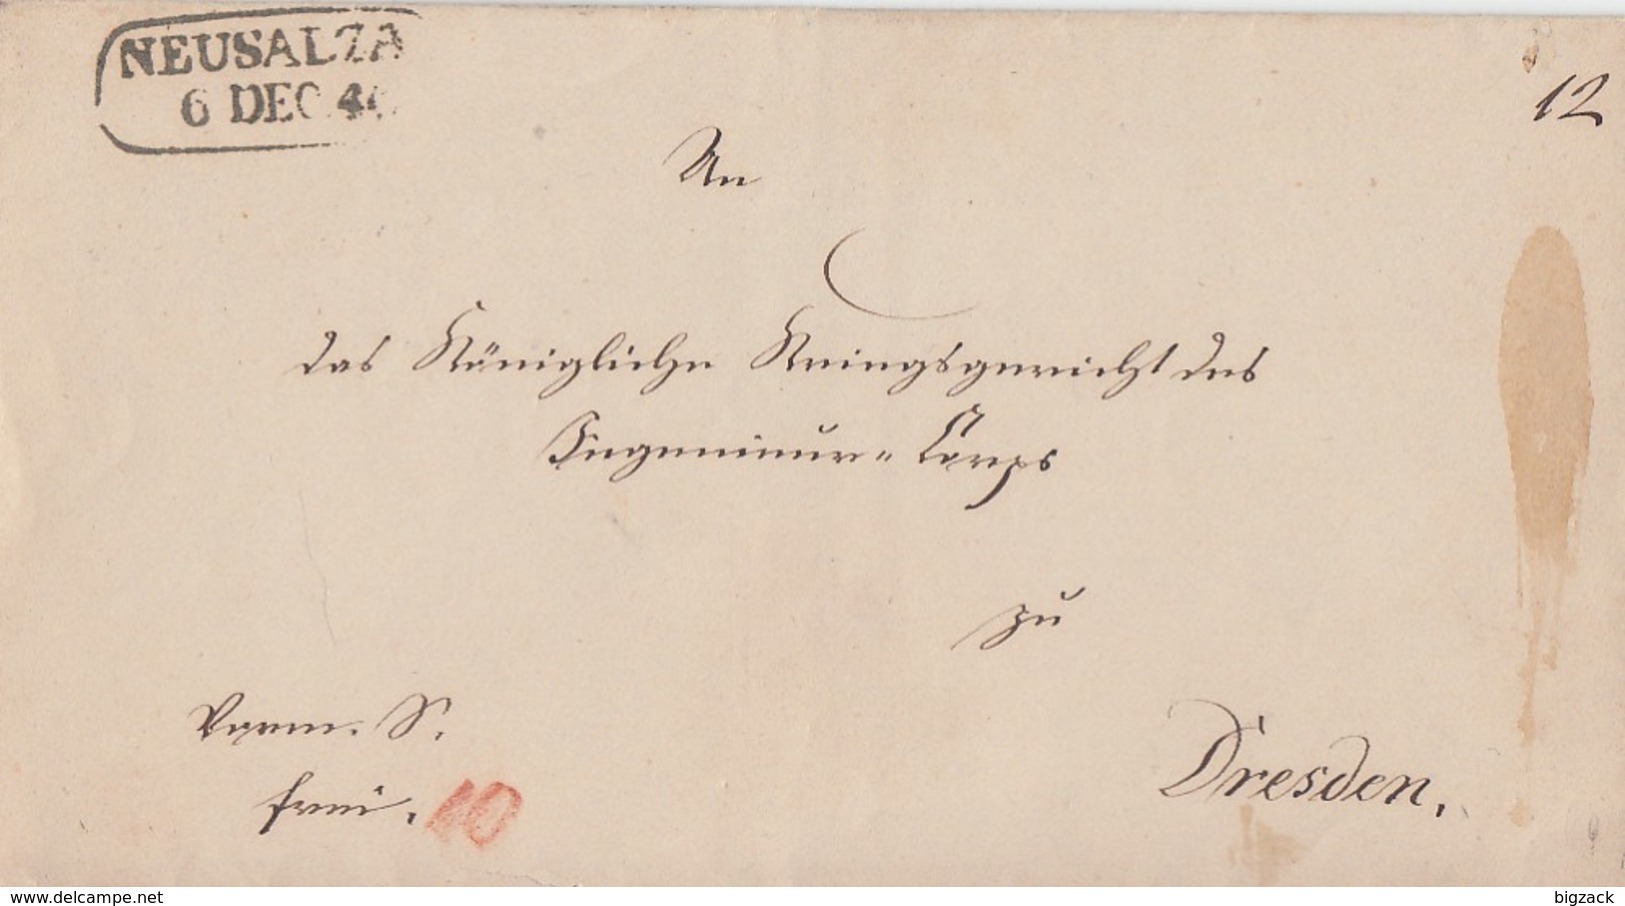 NEUSALZA
6 DEC 46
12
An
das Königliche Kriegsgericht des
Ingenieur-Corps
zu
Vorm. S.
frei.
10
Dresden.
delcampe.net
bigzack